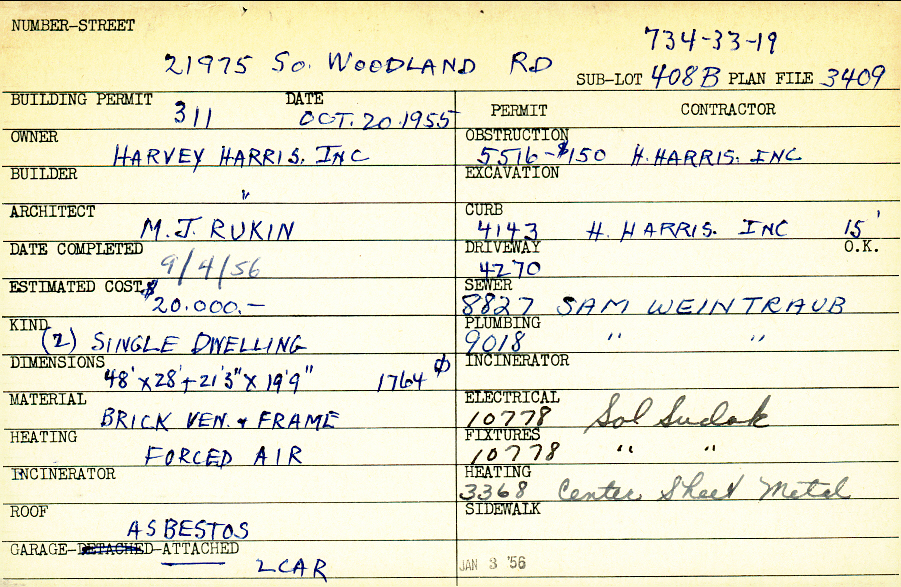 NUMBER-STREET
734-33-19
21975 So. WOODLAND RD
SUB-LOT 408B PLAN FILE 3409
BUILDING PERMIT 311 DATE OCT. 20.1955
OWNER HARVEY HARRIS, INC
BUILDER "
ARCHITECT M. J. RUKIN
DATE COMPLETED 9/4/56
ESTIMATED COST $20.000.—
KIND (2) SINGLE DWELLING
DIMENSIONS 48' x 28' + 21'3" x 19'9" 1764 ф
MATERIAL BRICK VEN. & FRAME
HEATING FORCED AIR
INCINERATOR
ROOF ASBESTOS
GARAGE-DETACHED-ATTACHED 2CAR
PERMIT CONTRACTOR
OBSTRUCTION 5516-$150 H. HARRIS. INC
EXCAVATION
CURB 4143 H. HARRIS. INC 15'
DRIVEWAY 4270 O.K.
SEWER 8827 SAM WEINTRAUB
PLUMBING 9018 " "
INCINERATOR
ELECTRICAL 10778 Sol Sudak
FIXTURES 10778 " "
HEATING 3368 Center Sheet Metal
SIDEWALK
JAN 3 '56